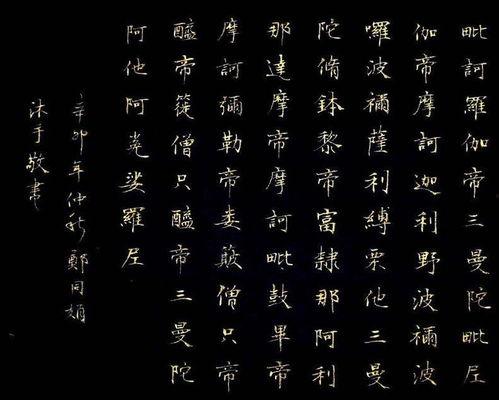 毗訶羅伽帝三曼陀毗尼
伽帝摩訶迦利野波禰波
囉波禰薩利縛栗他三曼
陀脩鉢黎帝富隸那阿利
那達摩帝摩訶毗鼓畢帝
摩訶彌勒帝委簸僧只帝
醯帝簁僧只醯帝三曼陀
阿他阿㝹娑羅尼
辛卯年仲秋鄭同
沐手敬書